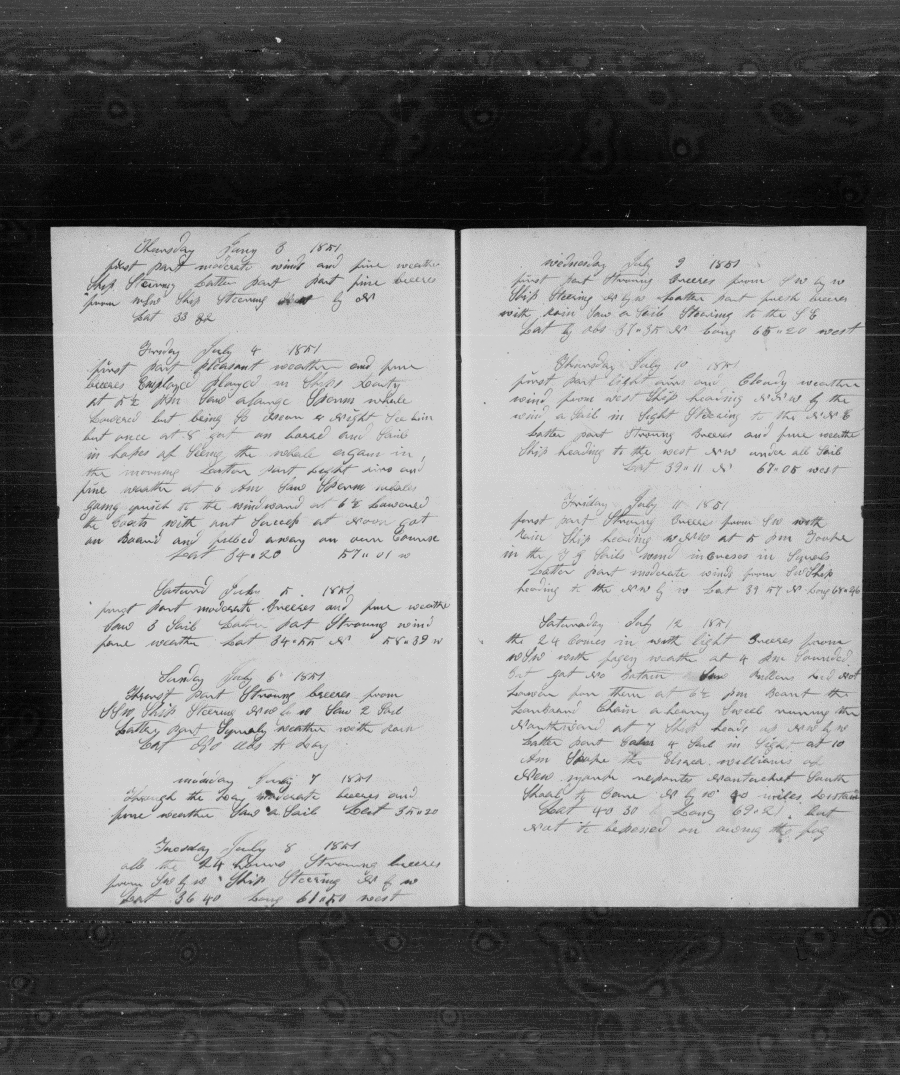 Thursday July 3 1851
first part moderate winds and fine weather
Ship Steering Latter part part fine breeses
from wsw Ship Steering by N
Lat 33 32
Friday July 4 1851
first part pleasant weather and fine
breeses Employed in Ships Deuty
at 5½ Pm Saw a large Sperm whale
Lowered but being So near Night See him
but once at 8 got on board and Sail
in hopes of Seing the whale again in
the morning Latter part light airs and
fine weather at 6 Am Saw Sperm whales
going quick to the windward at 6½ Lowered
the boats with out Sucsess at Noon got
on Board and away on our Course
Lat 34"20 57"01 w
Saturd July 5 1851
first part moderate Breeses and fine weather
Saw 3 Sail Latter Strong wind
fine weather Lat 34"55 N 58"39 w
Sunday July 6 1851
part Strong breeses from
SSW Ship Steering NW by w Saw 2 Sail
Latter part Squaly weather with rain
Lat No obs to day
monday July 7 1851
through the Day moderate breeses and
fine weather Saw a Sail Lat 35"20
Tuesday July 8 1851
all the 24 hours Stroung breeses
from Sw by w Ship Steering N by w
Lat 36 40 Long 61"50 west
wednesday July 9 1851
first part Stroung breeses from SW by w
Ship Steering N by w Latter part fresh breeses
with rain Saw a Sail Steering to the S E
Lat by obs 37"35 N Long 65"20 west
Thursday July 10 1851
first part light airs and Cloudy weather
wind from west Ship heading NNW by the
wind a Sail in Sight Steering to the NNE
Latter part Stroung breeses and fine weather
Ship heading to the west NW under all Sail
Lat 39"11 N 67"05 west
Friday July 11 1851
first part Stroung breese from SW with
rain Ship heading WNW at 5 pm Tooke
in the T G Sails wind increses in Squals
Latter part moderate winds from SW Ship
heading to the N by w Lat 39 57 N Long 68"46
Saturnday July 12 1851
the 24 comes in with light Breeses from
WSW with fogey weather at 4 Pm Sounded
but got No Bottom Saw did Not
Lower for them at 6½ pm
Larboard Chain a heavy Swell runing the
Northward at 7 Ship heads up NW by w
Latter part 4 Sail in Sight at 10
Am Spoke the williams of
New reported Nantucket South
Shoal to bare N by w 40 miles Distant
Lat 40 30 Long 69"21 but
Not to be on owing the fog